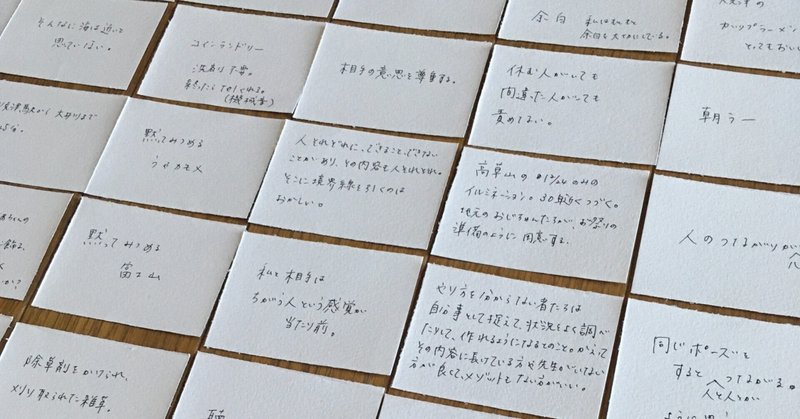 そんなに海は近いと
思っていない。
コインランドリー
洗剤不要。
(機械音)
余白
私はもっと
余白を大切にしている。
カップラーメン
とってもおいし
相手の意思を尊重する。
休む人がいても
間違った人がいても
責めない。
朝ラー
黙ってみつめる
ウミカモメ
人それぞれに、できること、できない
ことがあり、その内容も人それぞれ。
そこに境界線を引くのは
おかしい。
高草山の 12/24のみの
イルミネーション。30年近くつづく。
地元のおじちゃんたちが、お祭りの
準備のように用意する。
人のつながりが
黙ってみつめる
富士山
私と相手は
ちがう人という感覚が
当たり前。
やり方を分からない者たちは
自分事として捉えて、状況をよく調べ
たりして、作れるようになるとのこと。かえって
その内容に長けている方や先生がいない
方が良くて、メソッドもない方がいい。
同じポーズを
すると つながる。
人と人とが
除草剤をかけられ、
メリリ取られた雑草。